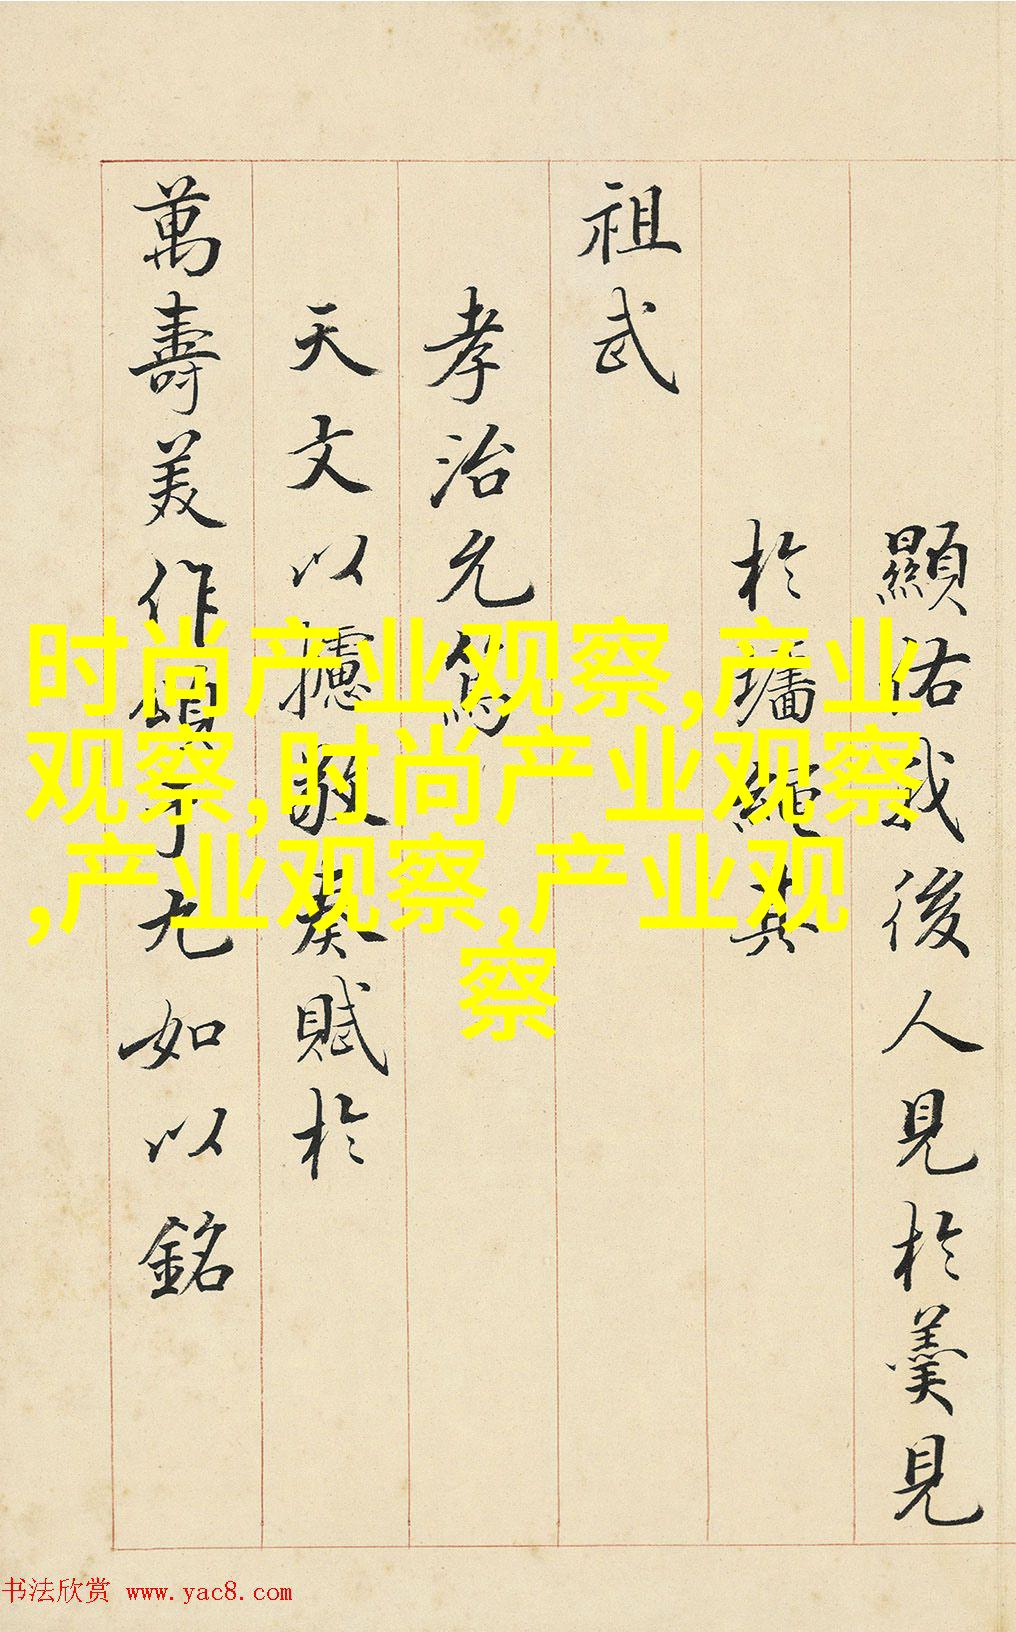 顯佑我後人見於羹見
於墻繩其
祖武
孝治允篤
天文以攄敬奏賦於
萬壽美作頌乎尤如以銘
时尚产业观察,产业
观察,时尚产业观察
,产业观察,产业观
察
书法欣赏 www.yac8.com